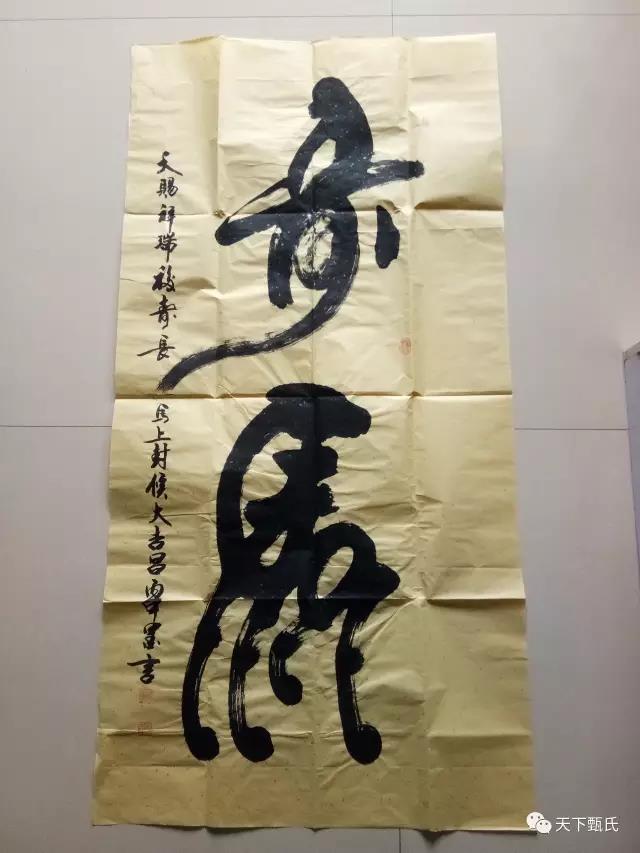 寿馬
天賜祥瑞福寿長
马上封侯大吉昌
天下甄氏